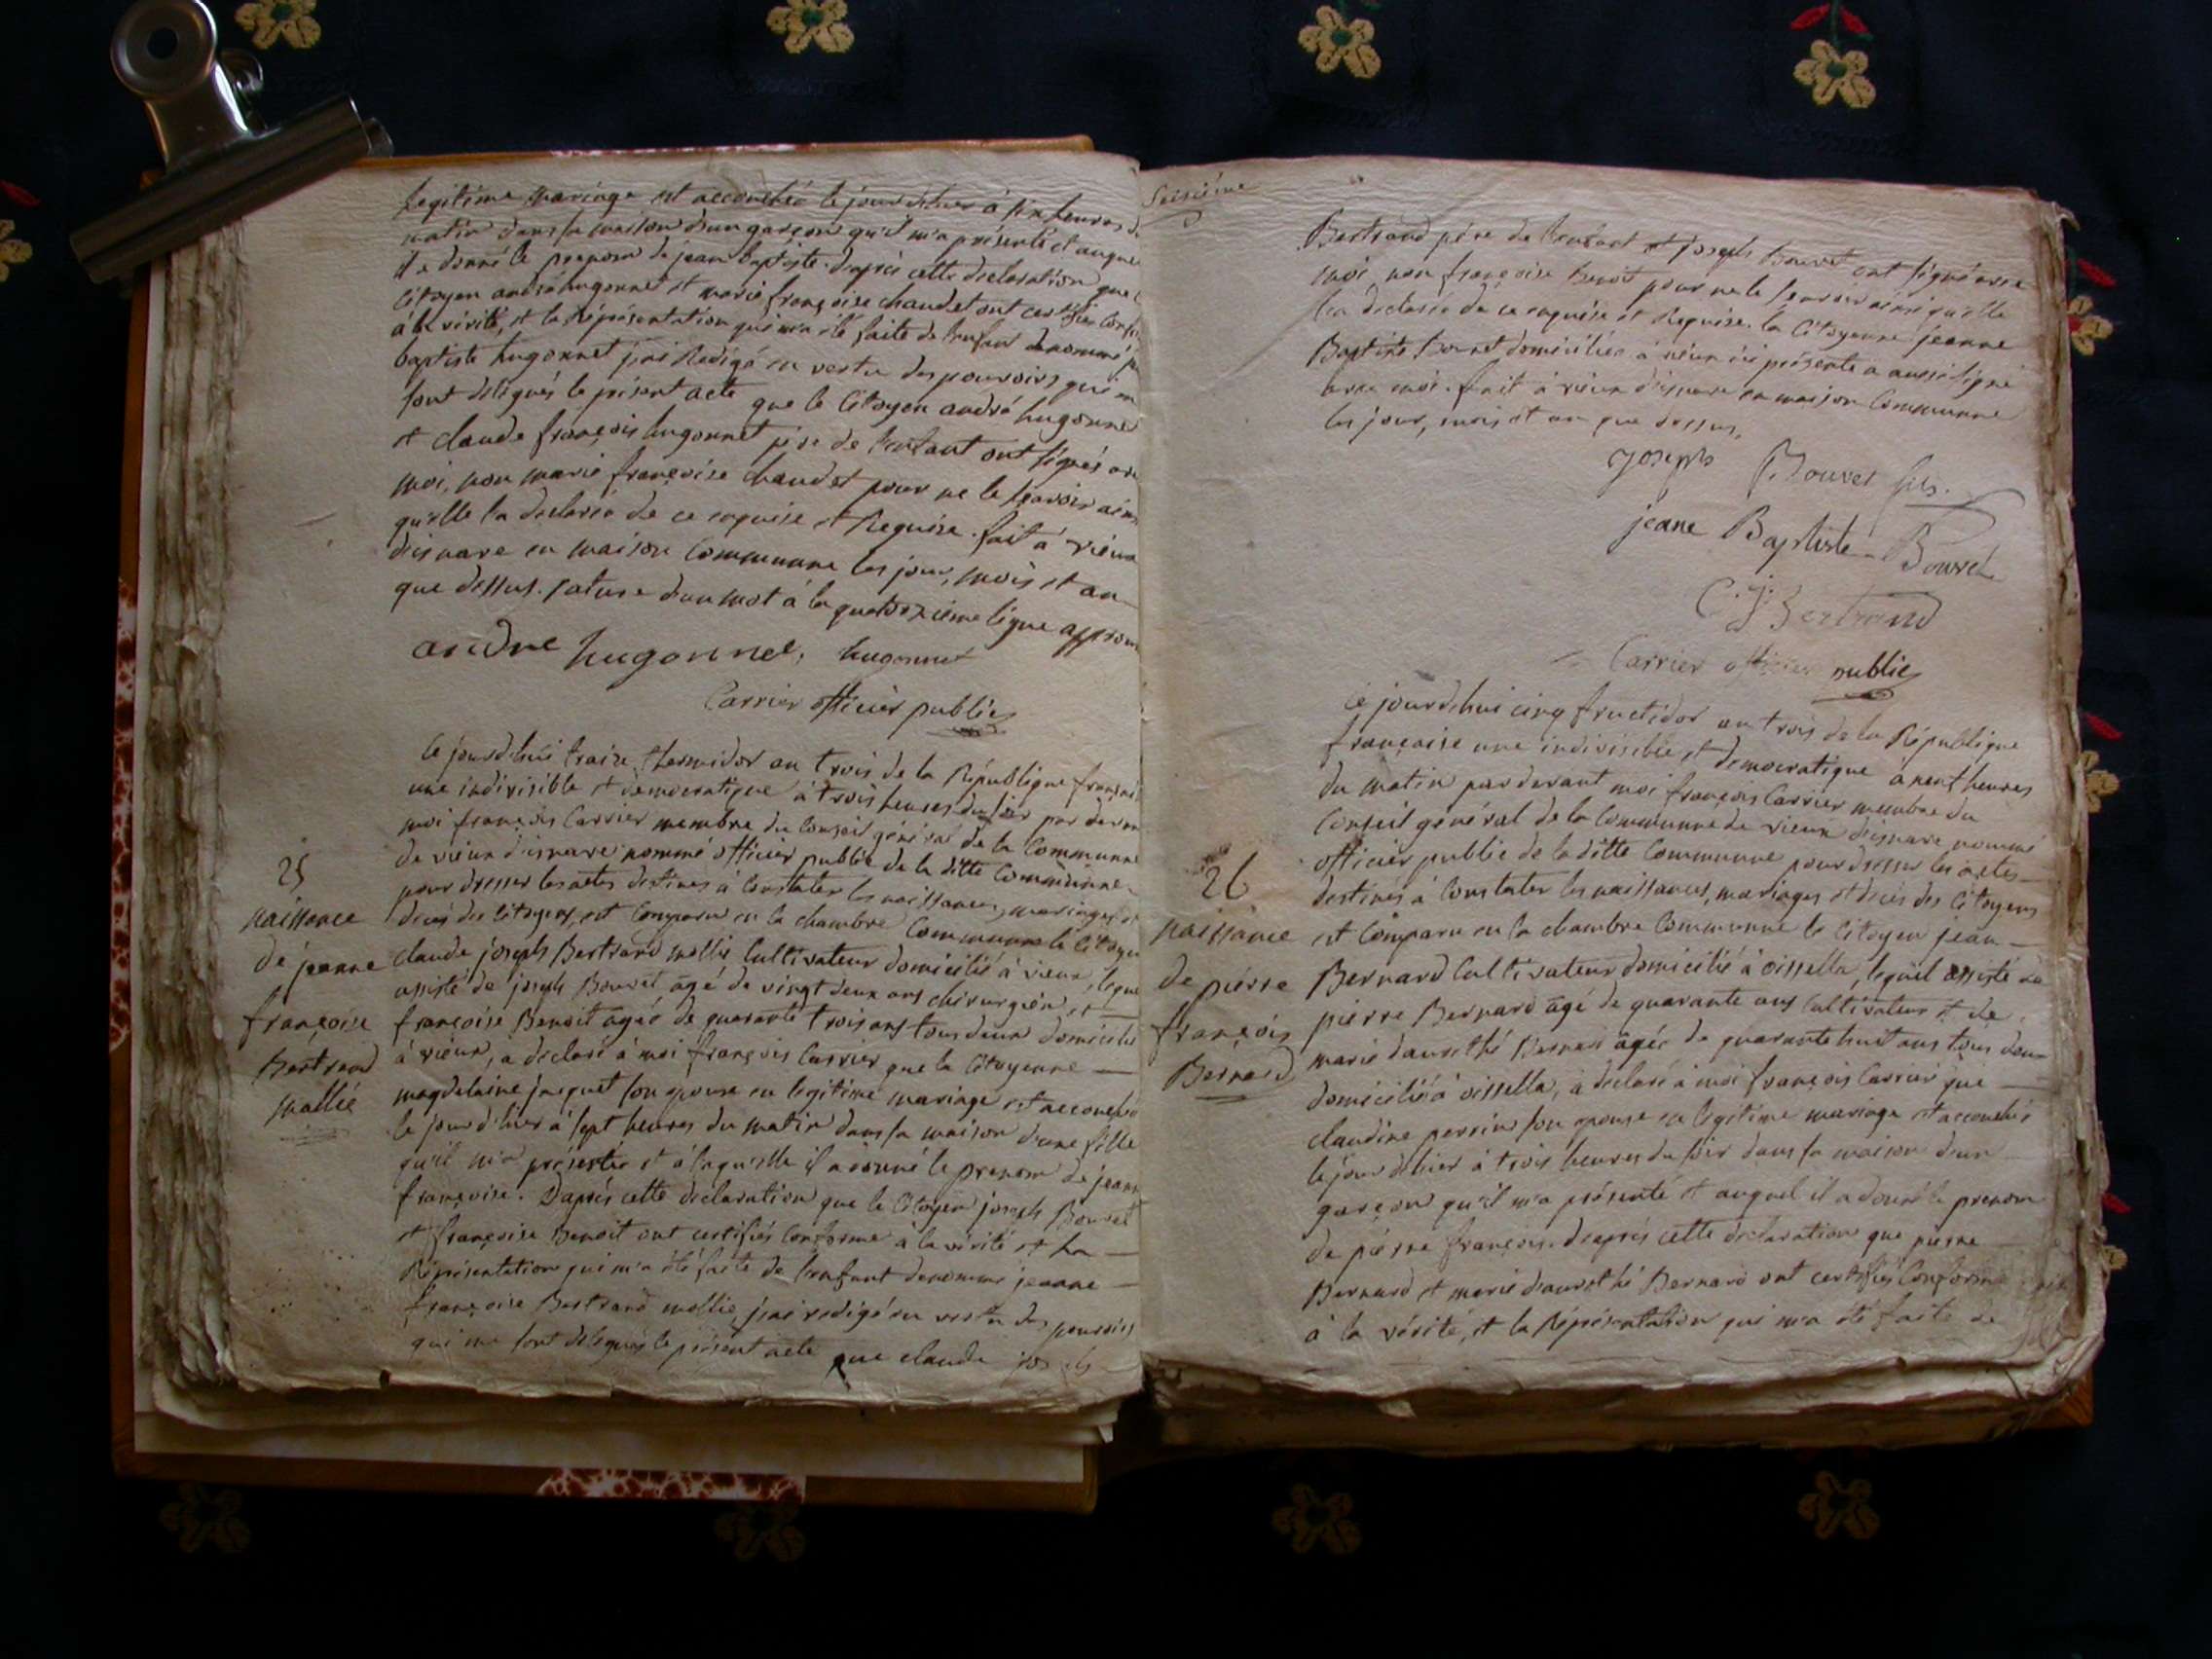 legitime mariage est accouchée le jour d'hier à six heures d
matin dans sa maison d'un garçon qu'il m'a présenté et auque
il a donné le prenom de jean baptiste. d'après cette declaration que l
Citoyen andré hugonnet et marie françoise chaudet ont certifiés confor
à la vérité, et la Réprésentation qui m'a été faite de l'enfant denommé
baptiste hugonnet j'ai Redigé en vertu des pouvoirs qui m
sont délégués le présent acte que le Citoyen andré hugonne
et claude françois hugonnet père de l'enfant ont signés ave
moi, non marie françoise chaudet pour ne le sçavoir ains
qu'elle l'a declarée de ce enquise et Requise. fait à vieux
d'isnave en maison Communne les jour, mois et an
que dessus. rature d'un mot à la quatorzieme ligne approuv
andre hugonnet, hugonnet
Carrier officier public
Ce jourd'hui traize thermidor an trois de la République françai
une indivisible et démocratique à trois heures du soir par devan
moi françois Carrier membre du Conseil général de la Communne
de vieux d'isnave nommé officier public de la ditte Communne
pour dresser les actes destinés à Constater les naissances, mariages et
decès des Citoyens, est comparu en la chambre Communne le Citoyen
25
naissance
de jeanne
françoise
Bertrand
mollié
claude joseph Bertrand mollie Cultivateur domicilié à vieux, leque
assisté de joseph Bouvet âgé de vingt deux ans chirurgien, et
françoise Benoit agée de quarante trois ans tous deux domiciliés
à vieux, a declaré à moi françois Carrier que la Citoyenne
magdelaine jacquet son épouse en legitime mariage est accouchée
le jour d'hier à sept heures du matin dans sa maison d'une fille
qu'il m'a présentée et à laquelle il a donné le prenom de jeann
françoise. D'après cette declaration que le Citoyen joseph Bouvet
et françoise Benoit ont certifiés Conforme à la vérité et la
Réprésentation qui m'a été faite de l'enfant denommé jeanne
françoise Bertrand mollie, j'ai redigé en vertu des pouvoirs
qui me sont délégués le présent acte que claude joseph
Seizième
Bertrand père de l'enfant et joseph Bouvet ont signé avec
moi, non françoise Benoit pour ne le sçavoir ainsi qu'elle
l'a declarée de ce enquise et Requise. la Citoyenne jeanne
Baptiste Bouvet domiciliée à vieux ici présente a aussi signé
avec moi. fait à vieux d'isnave en maison Communne
les jour, mois et an que dessus,
joseph Bouvet fils.
jeane Baptiste Bouvet
C. J. Bertrand
Carrier officier public
Ce jourd'hui cinq fructidor an trois de la République
française une indivisible et democratique à neuf heures
du matin par devant moi françois Carrier membre du
Conseil général de la Communne de vieux d'isnave nommé
officier public de la ditte Communne pour dresser les actes
destinés à Constater les naissances, mariages et decès des Citoyens
26
naissance
de pierre
françois
Bernard
est Comparu en la chambre Communne le Citoyen jean
Bernard Cultivateur domicilié à oissella, lequel assisté de
pierre Bernard âgé de quarante ans Cultivateur et de
marie daurethé Bernard agée de quarante huit ans tous deux
domiciliés à oissella, a declaré à moi françois Carrier que
claudine perrin son épouse en legitime mariage est accouchée
le jour d'hier à trois heures du soir dans sa maison d'un
garçon qu'il m'a présenté et auquel il a donné le prenom
de pierre françois. d'après cette declaration que pierre
Bernard et marie daurethé Bernard ont certifiés Conforme
à la vérité, et la Réprésentation qui m'a été faite de